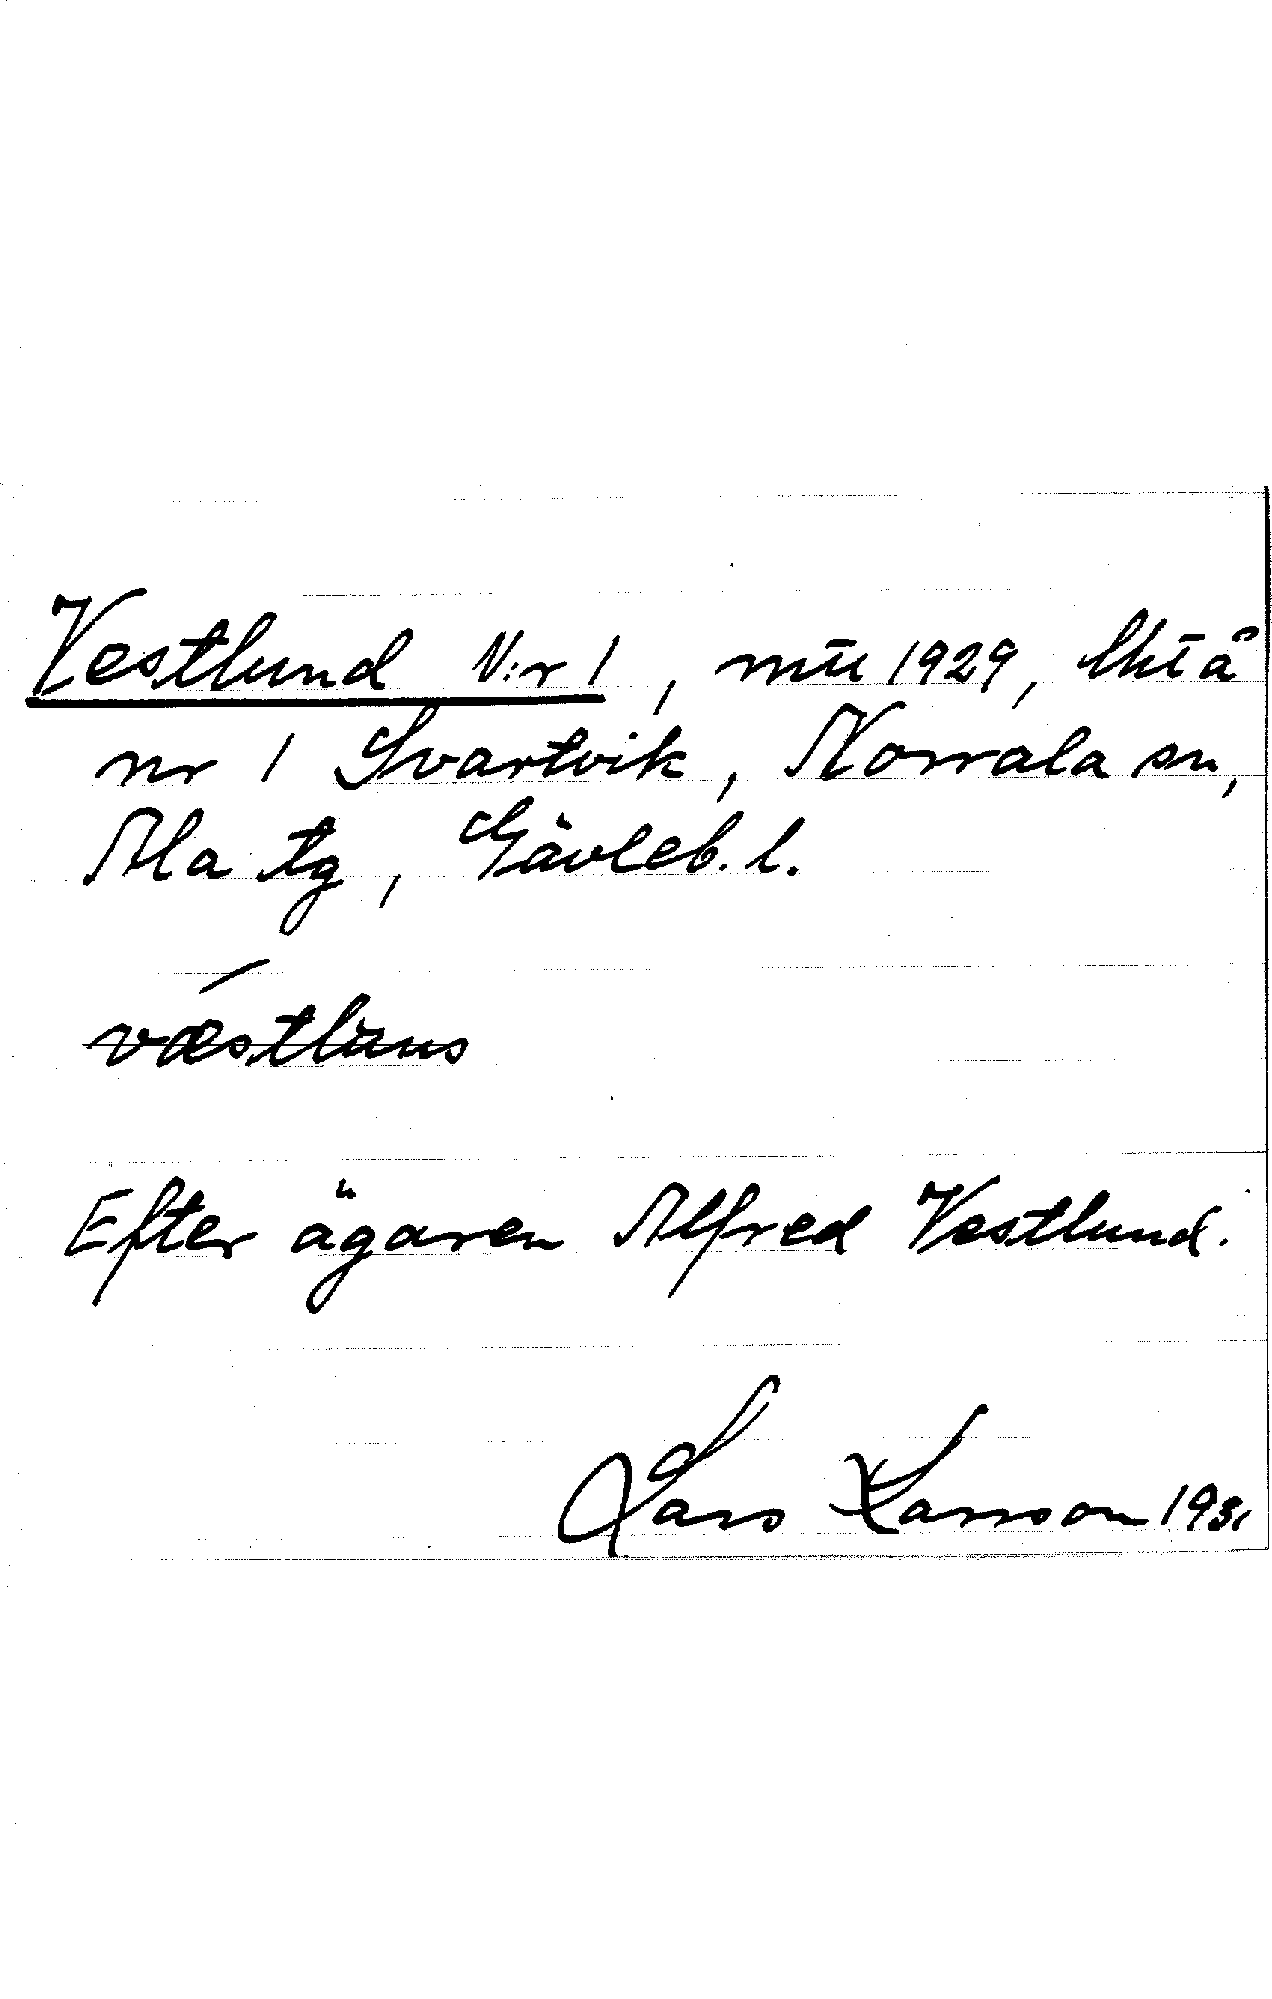 Vestlund N:r 1, mtl 1929, lht å
nr 1 Svartvik, Norrala sn,
Ala tg, Gävleb. l.
væstluns
Efter ägaren Alfred Vestlund.
Lars Larsson 1931